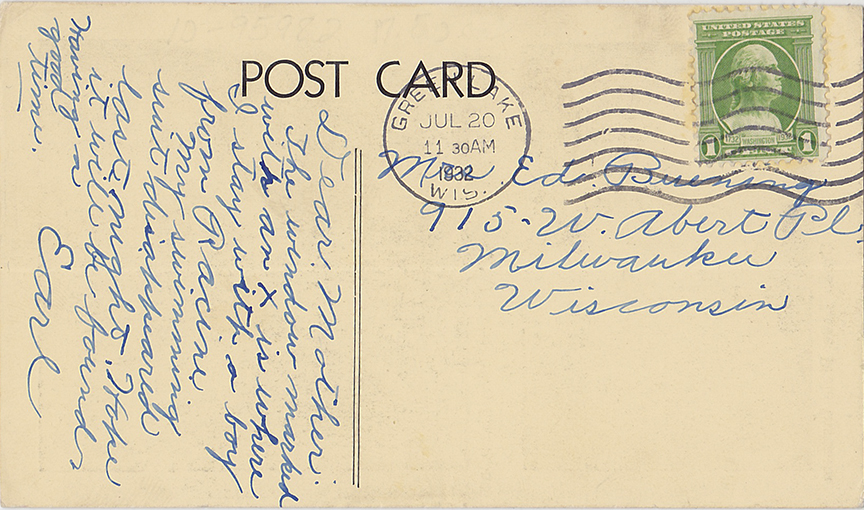 POST CARD
UNITED STATES
POSTAGE
1 WASHINGTON 1
GREEN LAKE
JUL 20
11 30 AM
1932
WIS.
Mrs. Ed. Buening
915-W. Abert Pl.
Milwaukee
Wisconsin
Dear Mother:
The window marked
with an X is where
I stay with a boy
from Racine.
My swimming
suit disappeared
last night. Hope
it will be found.
Having a
good
time.
Earl